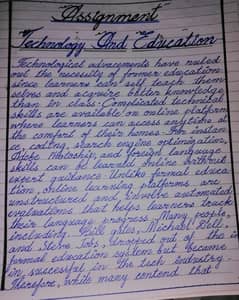 Assignment
Technology And Education
Technological advancements have ruled
out the necessity of former education
since learners can self teach them
selves and acquire better knowledge
than in class. Complicated technical
skills are available on online platform
where learners can access anytime at
the comfort of their homes. For instan
ce, coding, search engine optimization,
Adobe Photoshop and foreign language
skills can be learned online without
expert guidance Unlike formal educa
tion, online learning platforms are
unstructured and involve automated
evaluations that helps learners track
their language progress. Many people,
including Bill gates, Michael Dell,
and Steve Jobs, dropped out of the
formal education system but became
successful in the tech industry.
Therefore, while many contend that